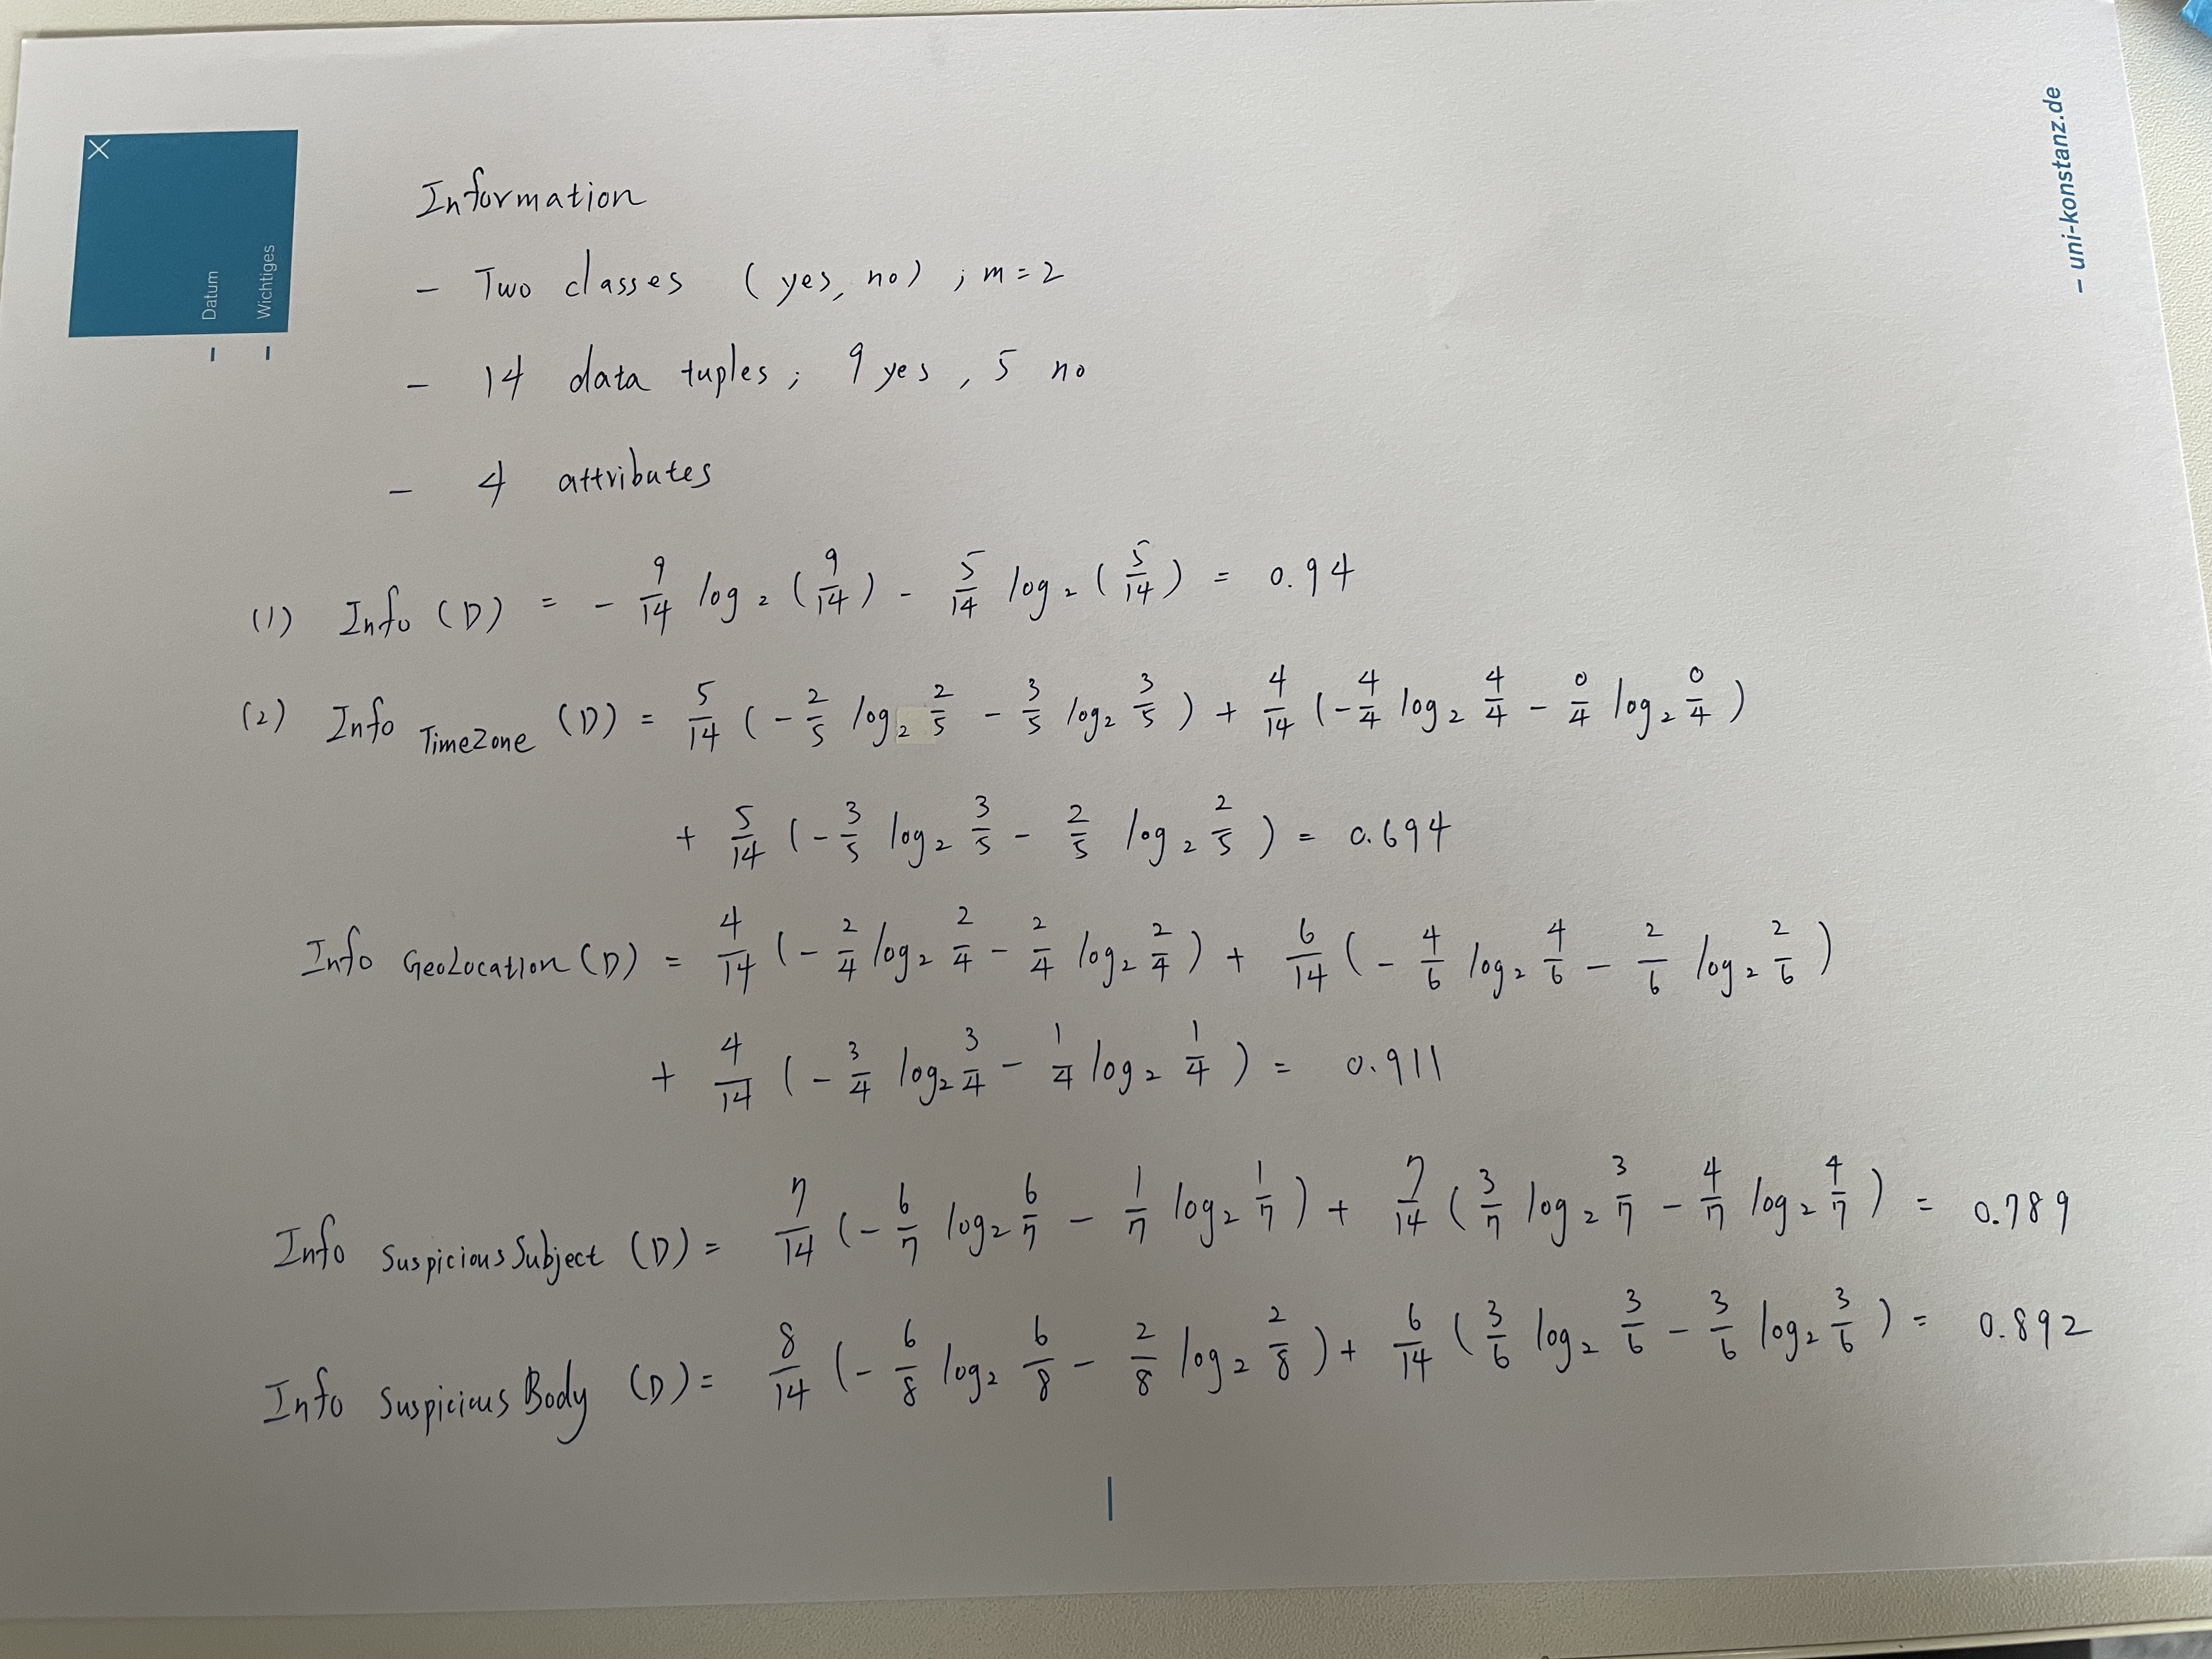 Datum
Wichtiges
– uni-konstanz.de
Information
– Two classes (yes, no) ; m = 2
– 14 data tuples; 9 yes, 5 no
– 4 attributes
(1) Info (D) = - 9/14 log₂ (9/14) - 5/14 log₂ (5/14) = 0.94
(2) Info TimeZone (D) = 5/14 (- 2/5 log₂ 2/5 - 3/5 log₂ 3/5) + 4/14 (- 4/4 log₂ 4/4 - 0/4 log₂ 0/4)
+ 5/14 (- 3/5 log₂ 3/5 - 2/5 log₂ 2/5) = 0.694
Info GeoLocation (D) = 4/14 (- 2/4 log₂ 2/4 - 2/4 log₂ 2/4) + 6/14 (- 4/6 log₂ 4/6 - 2/6 log₂ 2/6)
+ 4/14 (- 3/4 log₂ 3/4 - 1/4 log₂ 1/4) = 0.911
Info SuspiciousSubject (D) = 7/14 (- 6/7 log₂ 6/7 - 1/7 log₂ 1/7) + 7/14 (3/7 log₂ 3/7 - 4/7 log₂ 4/7) = 0.789
Info Suspicious Body (D) = 8/14 (- 6/8 log₂ 6/8 - 2/8 log₂ 2/8) + 6/14 (3/6 log₂ 3/6 - 3/6 log₂ 3/6) = 0.892